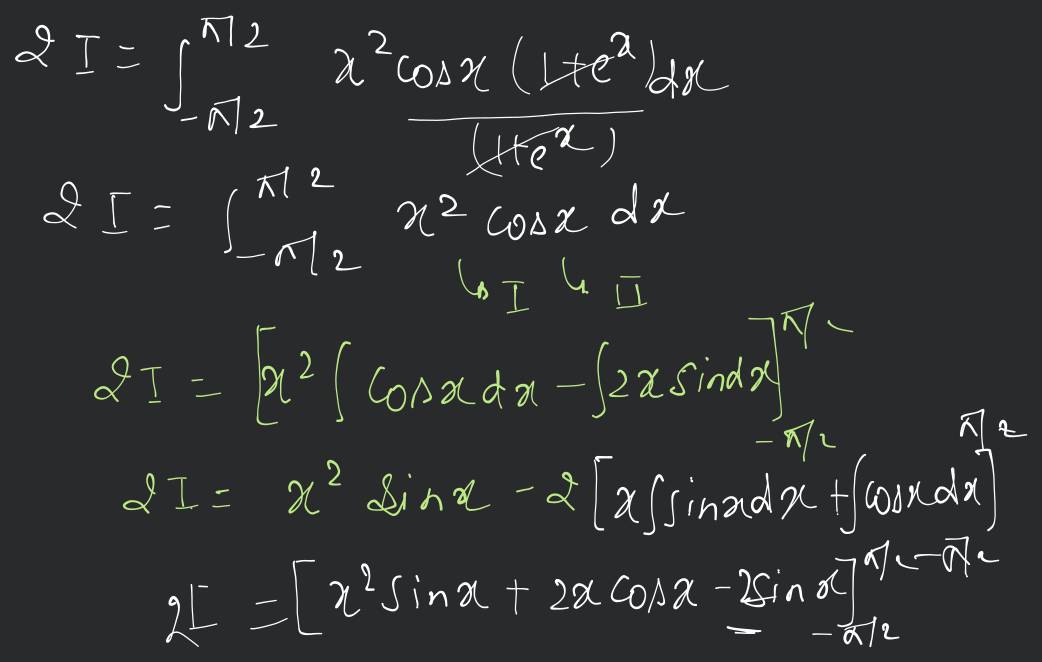 2I = ∫_{-π/2}^{π/2} x² cosx (1+e^x)dx / (1+e^x)
2I = ∫_{-π/2}^{π/2} x² cosx dx
↳ I ↳ II
2I = [x² ∫ cosx dx - ∫2x sindx]_{-π/2}^{π/2}
2I = x² sinx - 2 [x∫sinxdx + ∫cosxdx]^{π/2}
2I = [x² sinx + 2x cosx - 2sinx]_{-π/2}^{π/2 - π/2}